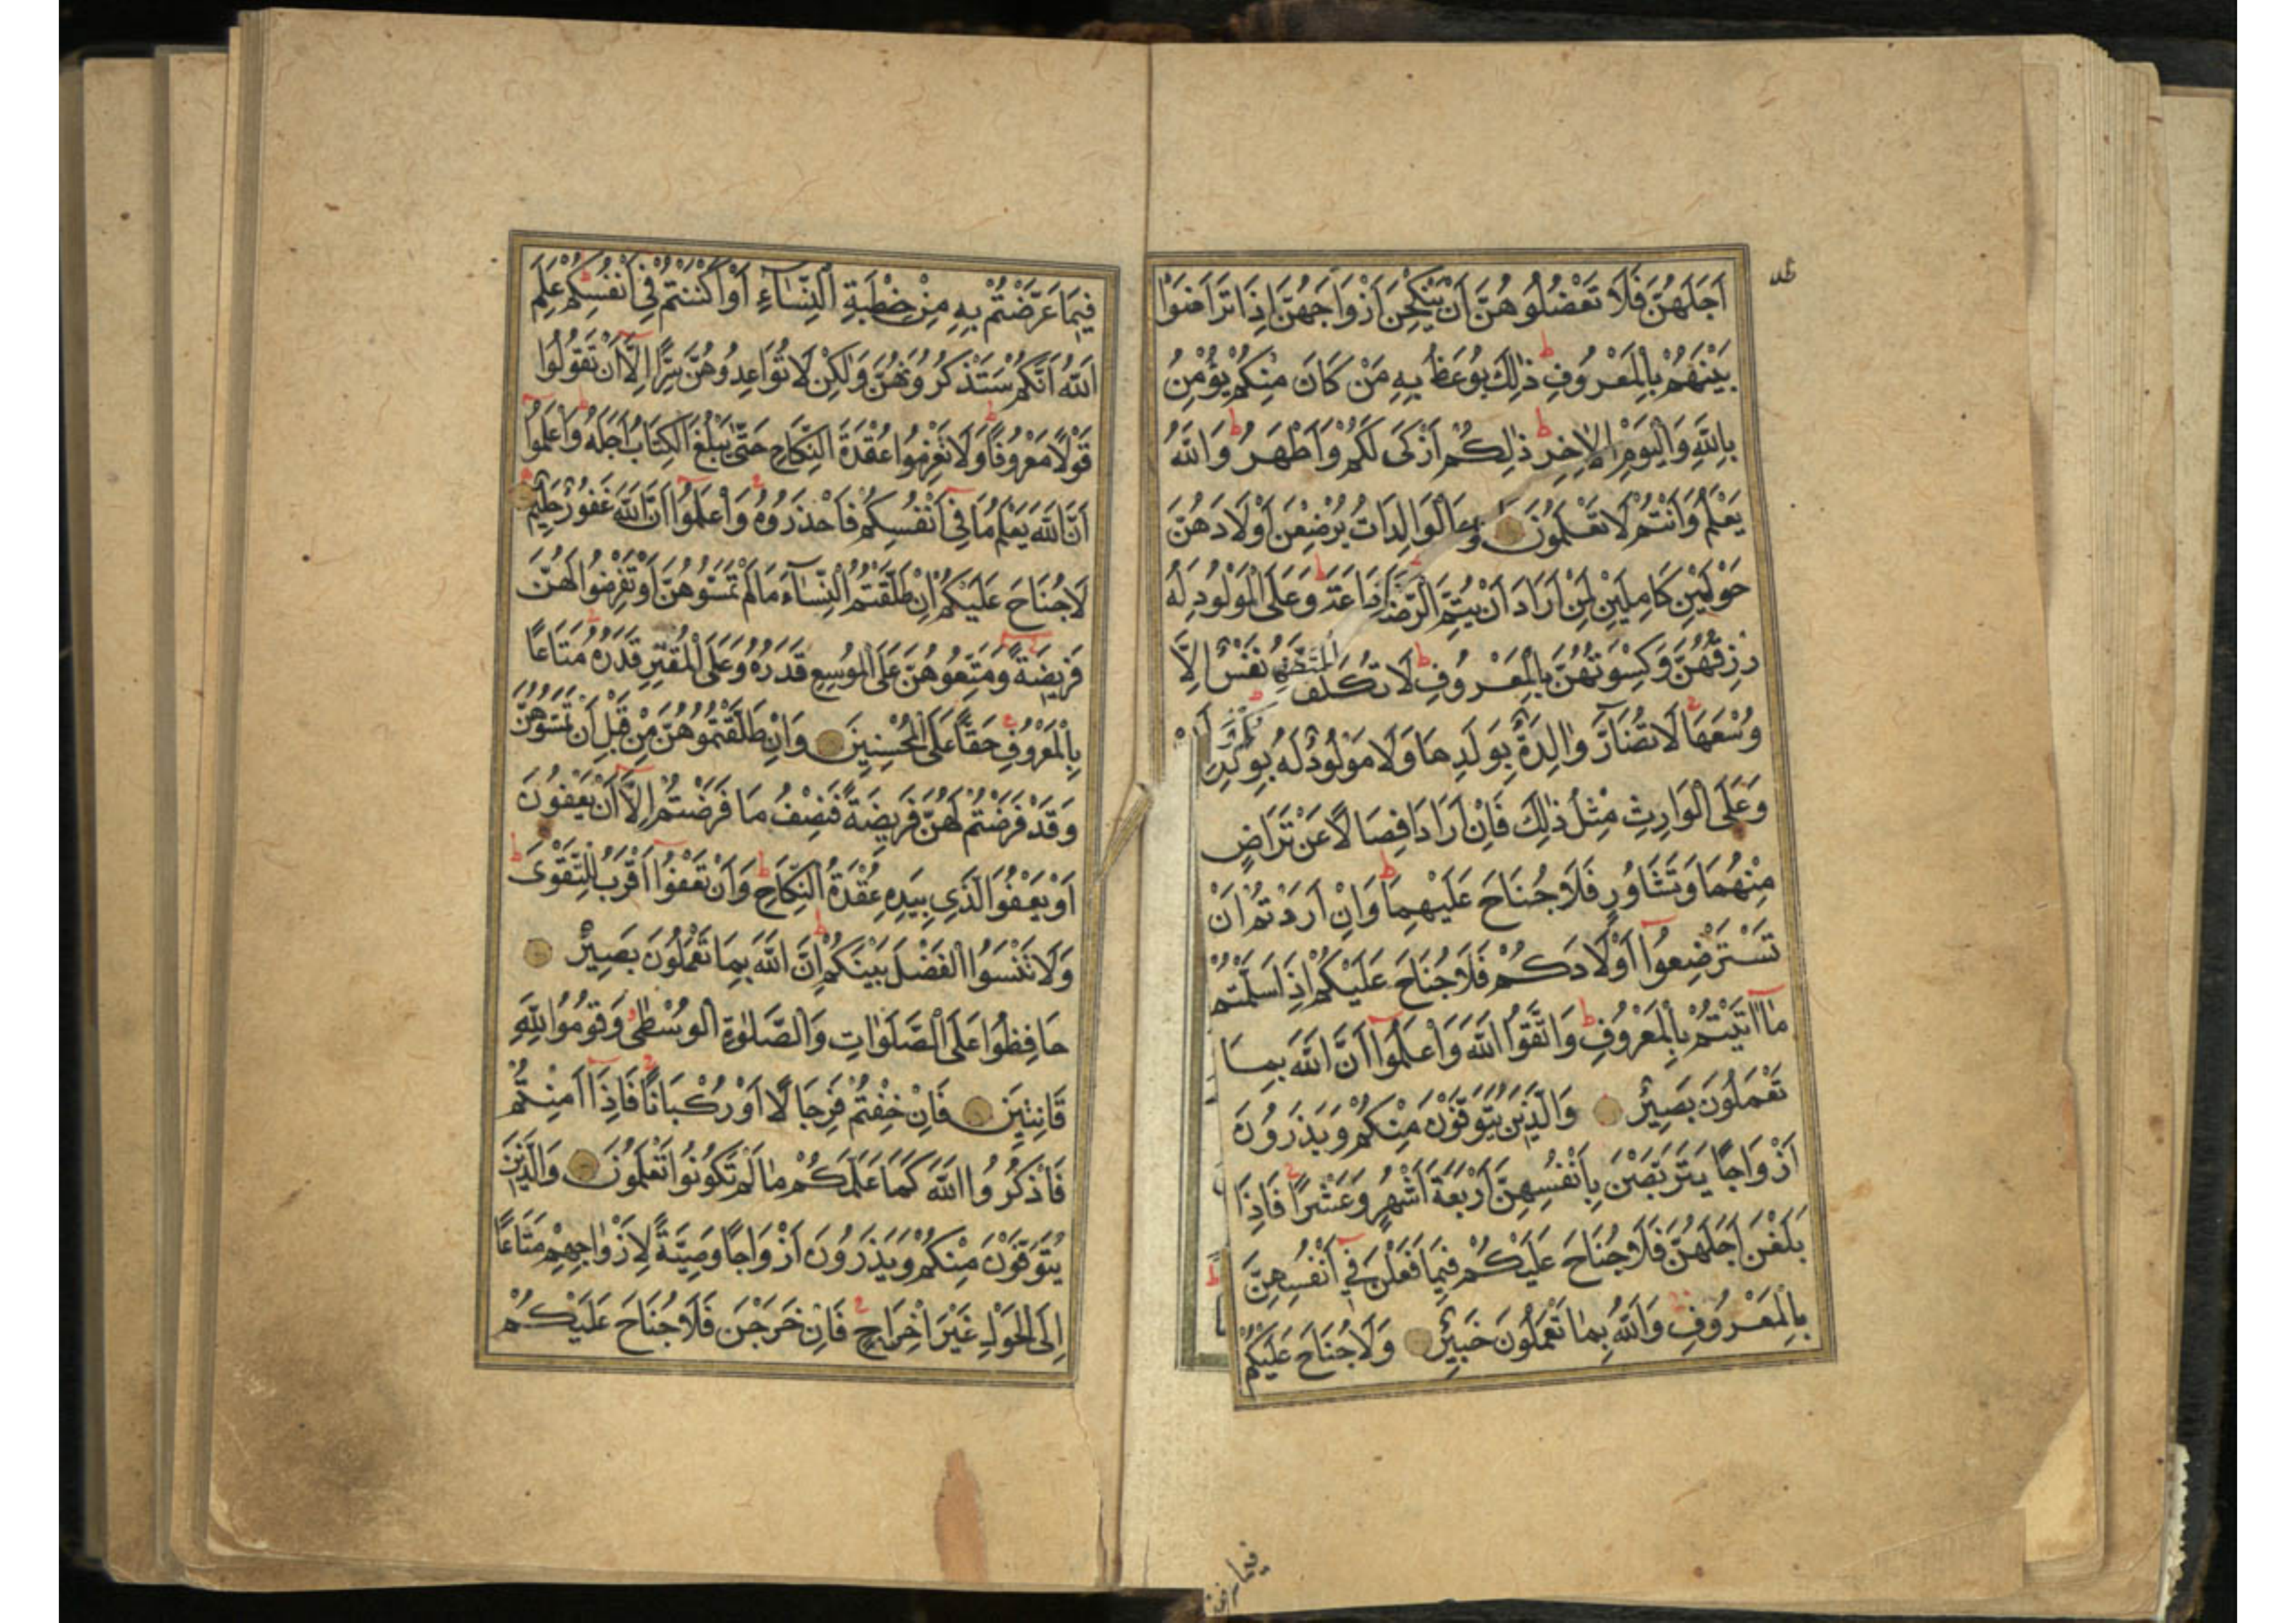 اَجَلَهُنَّ فَلَا تَعْضُلُوهُنَّ اَنْ يَنْكِحْنَ اَزْوَاجَهُنَّ اِذَا تَرَاضَوْا
بَيْنَهُمْ بِالْمَعْرُوفِ ذٰلِكَ يُوعَظُ بِهِ مَنْ كَانَ مِنْكُمْ يُؤْمِنُ
بِاللّٰهِ وَالْيَوْمِ الْاٰخِرِ ذٰلِكُمْ اَزْكَى لَكُمْ وَاَطْهَرُ وَاللّٰهُ
يَعْلَمُ وَاَنْتُمْ لَا تَعْلَمُونَ وَالْوَالِدَاتُ يُرْضِعْنَ اَوْلَادَهُنَّ
حَوْلَيْنِ كَامِلَيْنِ لِمَنْ اَرَادَ اَنْ يُتِمَّ الرَّضَاعَةَ وَعَلَى الْمَوْلُودِ لَهُ
رِزْقُهُنَّ وَكِسْوَتُهُنَّ بِالْمَعْرُوفِ لَا تُكَلَّفُ نَفْسٌ اِلَّا
وُسْعَهَا لَا تُضَارَّ وَالِدَةٌ بِوَلَدِهَا وَلَا مَوْلُودٌ لَهُ بِوَلَدِهِ
وَعَلَى الْوَارِثِ مِثْلُ ذٰلِكَ فَاِنْ اَرَادَا فِصَالًا عَنْ تَرَاضٍ
مِنْهُمَا وَتَشَاوُرٍ فَلَا جُنَاحَ عَلَيْهِمَا وَاِنْ اَرَدْتُمْ اَنْ
تَسْتَرْضِعُوا اَوْلَادَكُمْ فَلَا جُنَاحَ عَلَيْكُمْ اِذَا سَلَّمْتُمْ
مَا اٰتَيْتُمْ بِالْمَعْرُوفِ وَاتَّقُوا اللّٰهَ وَاعْلَمُوا اَنَّ اللّٰهَ بِمَا
تَعْمَلُونَ بَصِيرٌ وَالَّذِينَ يُتَوَفَّوْنَ مِنْكُمْ وَيَذَرُونَ
اَزْوَاجًا يَتَرَبَّصْنَ بِاَنْفُسِهِنَّ اَرْبَعَةَ اَشْهُرٍ وَعَشْرًا فَاِذَا
بَلَغْنَ اَجَلَهُنَّ فَلَا جُنَاحَ عَلَيْكُمْ فِيمَا فَعَلْنَ فِي اَنْفُسِهِنَّ
بِالْمَعْرُوفِ وَاللّٰهُ بِمَا تَعْمَلُونَ خَبِيرٌ وَلَا جُنَاحَ عَلَيْكُمْ
فِيمَا عَرَّضْتُمْ بِهِ مِنْ خِطْبَةِ النِّسَاءِ اَوْ اَكْنَنْتُمْ فِي اَنْفُسِكُمْ عَلِمَ
اللّٰهُ اَنَّكُمْ سَتَذْكُرُونَهُنَّ وَلٰكِنْ لَا تُوَاعِدُوهُنَّ سِرًّا اِلَّا اَنْ تَقُولُوا
قَوْلًا مَعْرُوفًا وَلَا تَعْزِمُوا عُقْدَةَ النِّكَاحِ حَتَّى يَبْلُغَ الْكِتَابُ اَجَلَهُ وَاعْلَمُوا
اَنَّ اللّٰهَ يَعْلَمُ مَا فِي اَنْفُسِكُمْ فَاحْذَرُوهُ وَاعْلَمُوا اَنَّ اللّٰهَ غَفُورٌ حَلِيمٌ
لَا جُنَاحَ عَلَيْكُمْ اِنْ طَلَّقْتُمُ النِّسَاءَ مَا لَمْ تَمَسُّوهُنَّ اَوْ تَفْرِضُوا لَهُنَّ
فَرِيضَةً وَمَتِّعُوهُنَّ عَلَى الْمُوسِعِ قَدَرُهُ وَعَلَى الْمُقْتِرِ قَدَرُهُ مَتَاعًا
بِالْمَعْرُوفِ حَقًّا عَلَى الْمُحْسِنِينَ وَاِنْ طَلَّقْتُمُوهُنَّ مِنْ قَبْلِ اَنْ تَمَسُّوهُنَّ
وَقَدْ فَرَضْتُمْ لَهُنَّ فَرِيضَةً فَنِصْفُ مَا فَرَضْتُمْ اِلَّا اَنْ يَعْفُونَ
اَوْ يَعْفُوَا الَّذِي بِيَدِهِ عُقْدَةُ النِّكَاحِ وَاَنْ تَعْفُوا اَقْرَبُ لِلتَّقْوَى
وَلَا تَنْسَوُا الْفَضْلَ بَيْنَكُمْ اِنَّ اللّٰهَ بِمَا تَعْمَلُونَ بَصِيرٌ
حَافِظُوا عَلَى الصَّلَوَاتِ وَالصَّلٰوةِ الْوُسْطٰى وَقُومُوا لِلّٰهِ
قَانِتِينَ فَاِنْ خِفْتُمْ فَرِجَالًا اَوْ رُكْبَانًا فَاِذَا اَمِنْتُمْ
فَاذْكُرُوا اللّٰهَ كَمَا عَلَّمَكُمْ مَا لَمْ تَكُونُوا تَعْلَمُونَ وَالَّذِينَ
يُتَوَفَّوْنَ مِنْكُمْ وَيَذَرُونَ اَزْوَاجًا وَصِيَّةً لِاَزْوَاجِهِمْ مَتَاعًا
اِلَى الْحَوْلِ غَيْرَ اِخْرَاجٍ فَاِنْ خَرَجْنَ فَلَا جُنَاحَ عَلَيْكُمْ